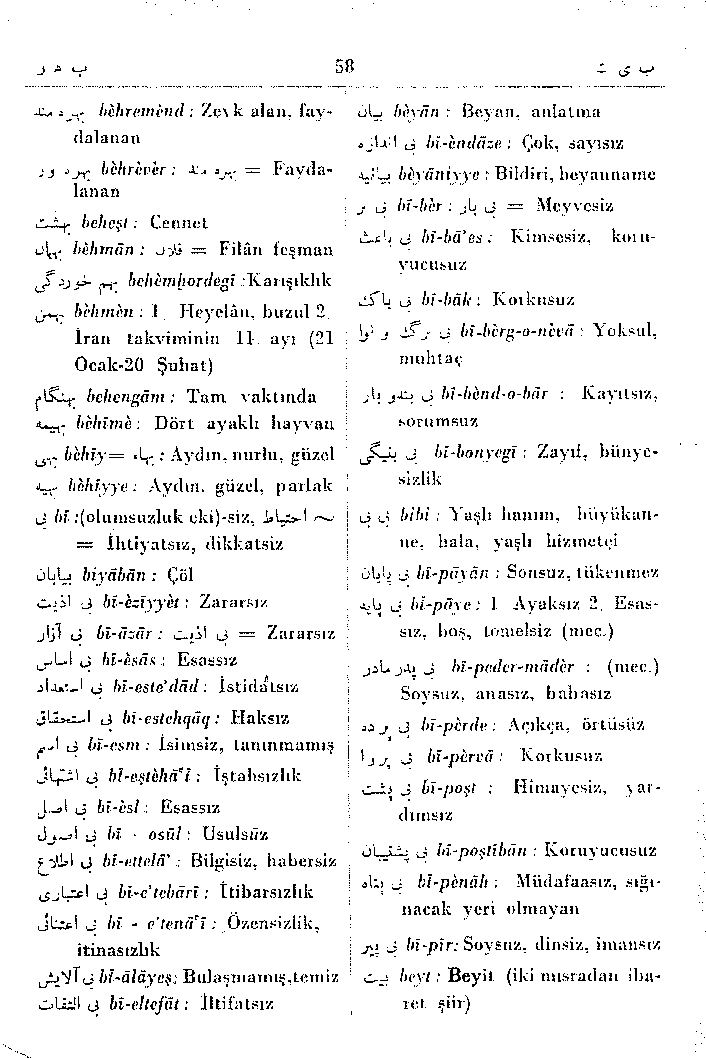 ب ه ر
58
ب ی ت
بهره مند bèhremènd : Zevk alan, fay-
dalanan
بهره ور bèhrèvèr : بهره مند = Fayda-
lanan
بهشت beheşt : Cennet
بهمان bèhmān : فلان = Filân feşman
بهم خوردگی behèmhordegī :Karışıklık
بهمن bèhmèn : 1. Heyelân, buzul 2.
İran takviminin 11. ayı (21
Ocak-20 Şubat)
بهنگام behengām : Tam vaktında
بهیمه bèhīmè : Dört ayaklı hayvan
بهی bèhīy= بهاء : Aydın, nurlu, güzel
بهیه bèhīyye : Aydın, güzel, parlak
بی bī :(olumsuzluk eki)-siz, ~ احتیاط
= İhtiyatsız, dikkatsiz
بیابان biyābān : Çöl
بی اذیت bī-èzīyyèt : Zararsız
بی آزار bī-āzār : بی اذیت = Zararsız
بی اساس bī-èsās : Esassız
بی استعداد bī-este'dād : İstidatsız
بی استحقاق bī-estehqāq : Haksız
بی اسم bī-esm : İsimsiz, tanınmamış
بی اشتهائی bī-eştèhā'ī : İştahsızlık
بی اصل bī-èsl : Esassız
بی اصول bī - osūl : Usulsüz
بی اطلاع bī-ettelā' : Bilgisiz, habersiz
بی اعتباری bī-e'tebārī : İtibarsızlık
بی اعتنائی bī - e'tenā'ī : Özensizlik,
itinasızlık
بی آلایش bī-ālāyeş: Bulaşmamış,temiz
بی التفات bī-eltefāt : İltifatsız
بیان bèyān : Beyan, anlatma
بی اندازه bī-èndāze : Çok, sayısız
بیانیه bèyāniyye : Bildiri, beyanname
بی بر bī-bèr : بی بار = Meyvesiz
بی باعث bī-bā'es : Kimsesiz, koru-
yucusuz
بی باک bī-bāk : Korkusuz
بی برگ و نوا bī-bèrg-o-nèvā : Yoksul,
muhtaç
بی بندو بار bī-bènd-o-bār : Kayıtsız,
sorumsuz
بی بنیگی bī-bonyegī : Zayıf, bünye-
sizlik
بی بی bibi : Yaşlı hanım, büyükan-
ne, hala, yaşlı hizmetçi
بی پایان bī-pāyān : Sonsuz, tükenmez
بی پایه bī-pāye : 1. Ayaksız 2. Esas-
sız, boş, temelsiz (mec.)
بی پدر مادر bī-peder-mādèr : (mec.)
Soysuz, anasız, babasız
بی پرده bī-pèrde : Açıkça, örtüsüz
بی پروا bī-pèrvā : Korkusuz
بی پشت bī-poşt : Himayesiz, yar-
dımsız
بی پشتیبان bī-poştībān : Koruyucusuz
بی پناه bī-pènāh : Müdafaasız, sığı-
nacak yeri olmayan
بی پیر bī-pīr: Soysuz, dinsiz, imansız
بیت beyt : Beyit (iki mısradan iba-
ret şiir)